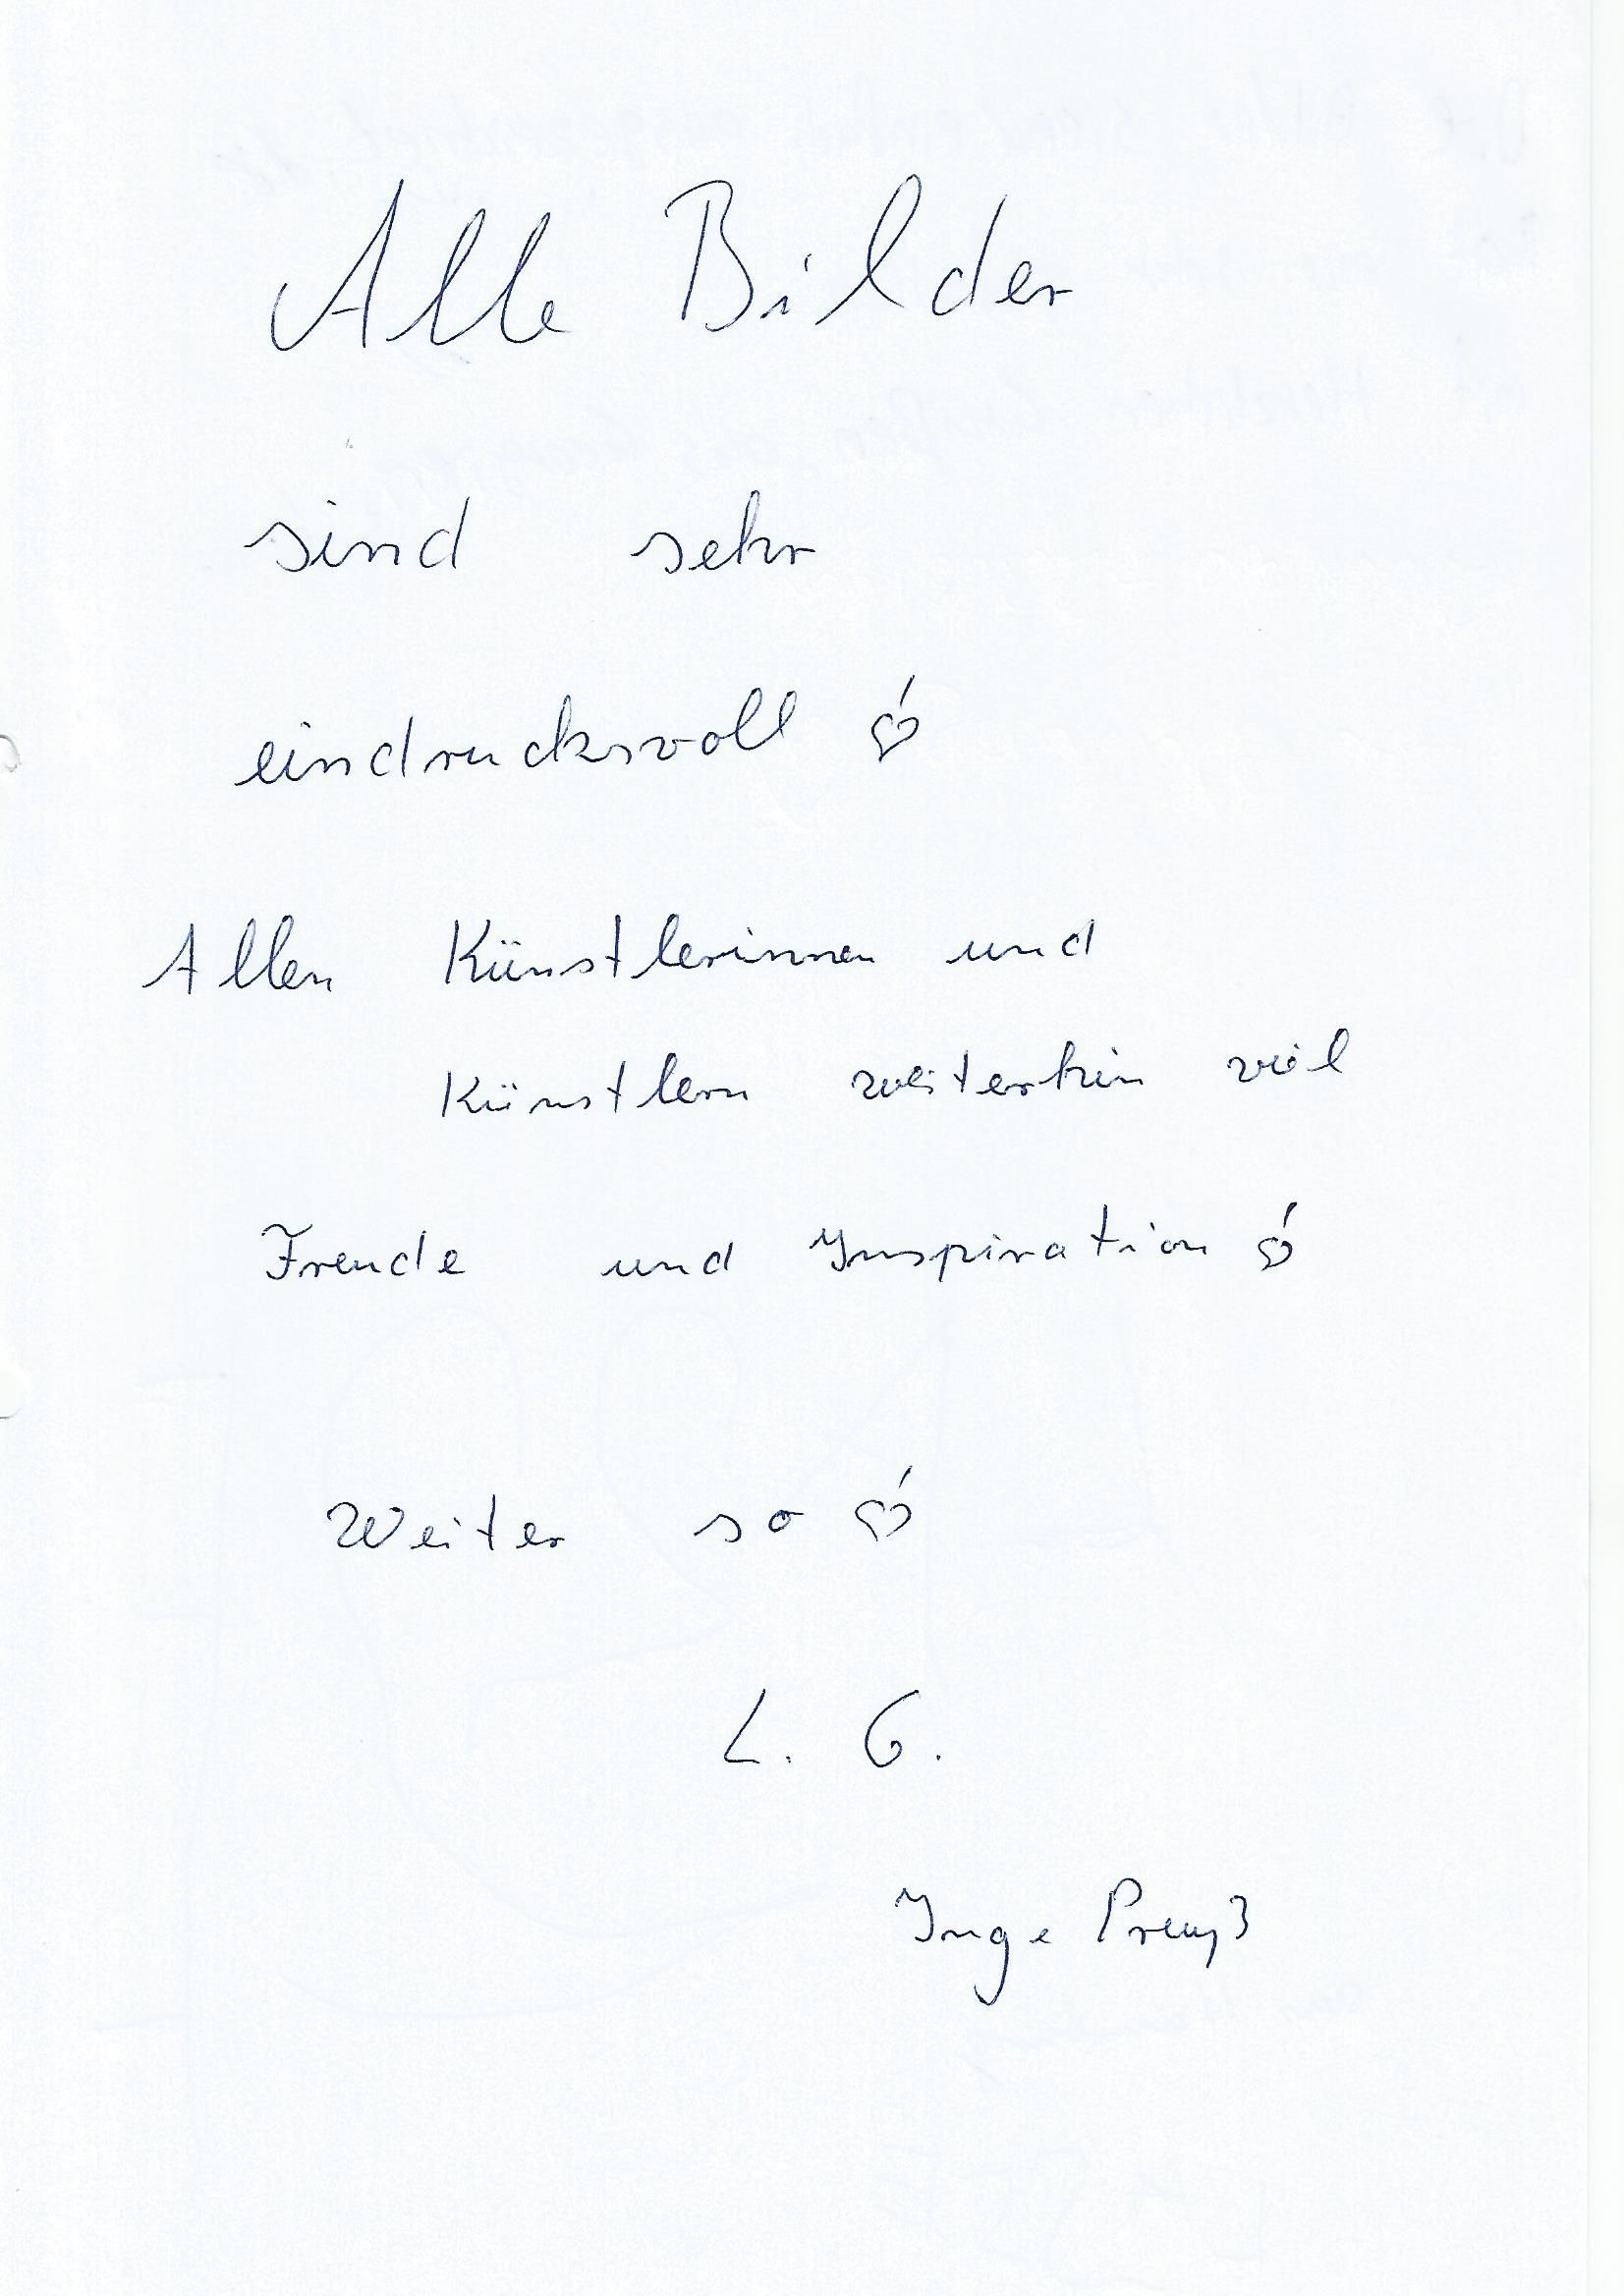 Alle Bilder
sind sehr
eindrucksvoll !
Allen Künstlerinnen und
Künstlern weiterhin viel
Freude und Inspiration !
Weiter so !
L. G.
Inge Preuß